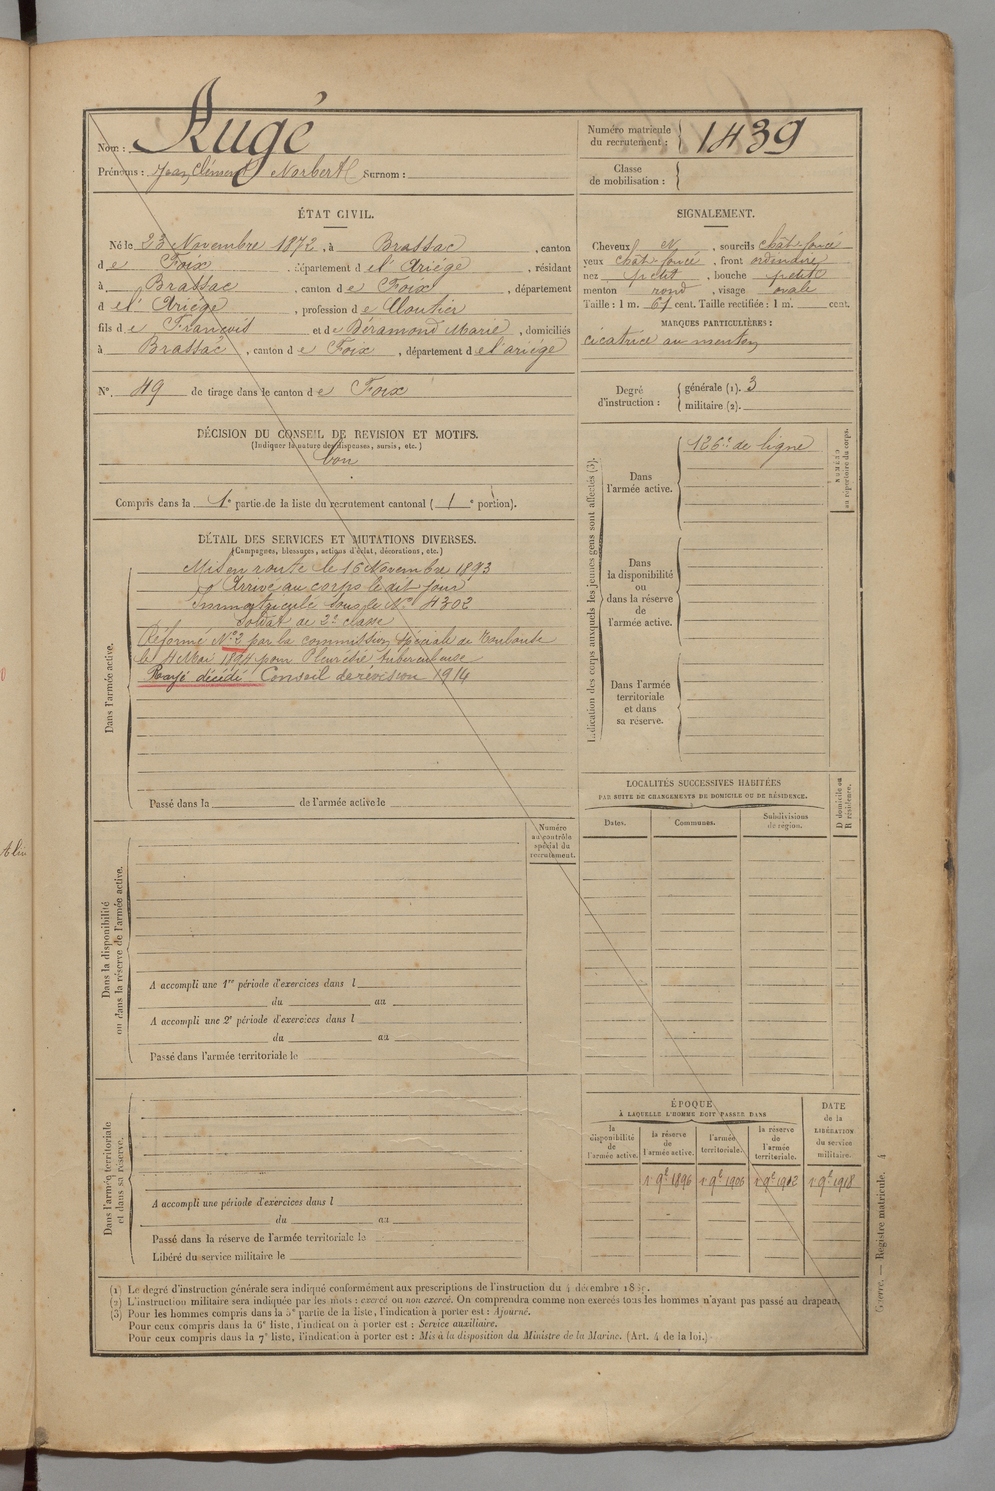 Nom : Augé
Prénoms : Jean Clément Norbert Surnom :
Numéro matricule du recrutement : 1439
Classe de mobilisation :
ÉTAT CIVIL.
Né le 23 Novembre 1872, à Brassac, canton
de Foix, département de l'Ariège, résidant
à Brassac, canton de Foix, département
de l'Ariège, profession de Cloutier
fils de François et de Béramond Marie, domiciliés
à Brassac, canton de Foix, département de l'ariége
N°. 49 de tirage dans le canton de Foix
SIGNALEMENT.
Cheveux N, sourcils chât. foncé
yeux chât. foncé, front ordinaire
nez petit, bouche petite
menton rond, visage ovale
Taille : 1 m. 61 cent. Taille rectifiée : 1 m. cent.
MARQUES PARTICULIÈRES :
cicatrice au menton
Degré d'instruction : générale (1). 3
militaire (2).
DÉCISION DU CONSEIL DE REVISION ET MOTIFS.
(Indiquer la nature des dispenses, sursis, etc.)
bon
Compris dans la 1e partie de la liste du recrutement cantonal ( 1 e portion).
DÉTAIL DES SERVICES ET MUTATIONS DIVERSES.
(Campagnes, blessures, actions d'éclat, décorations, etc.)
Dans l'armée active.
Mis en route le 16 Novembre 1893
Arrivé au corps le dit jour
Immatriculé sous le N° 4302
Soldat de 2e classe
Réformé N°2 par la commission spéciale de Toulouse
le 4 Mai 1894 pour Pleurésie tuberculeuse
Rayé décédé Conseil de révision 1914
Passé dans la de l'armée active le
Indication des corps auxquels les jeunes gens sont affectés (3).
Dans l'armée active.
126e de ligne
NUMÉRO au répertoire du corps.
Dans la disponibilité ou dans la réserve de l'armée active.
Dans l'armée territoriale et dans sa réserve.
LOCALITÉS SUCCESSIVES HABITÉES
PAR SUITE DE CHANGEMENTS DE DOMICILE OU DE RÉSIDENCE.
Dates.
Communes.
Subdivisions de région.
D domicile ou R résidence.
Numéro au contrôle spécial du recrutement.
Dans la disponibilité ou dans la réserve de l'armée active.
A accompli une 1re période d'exercices dans l
du au
A accompli une 2e période d'exercices dans l
du au
Passé dans l'armée territoriale le
Dans l'armée territoriale et dans sa réserve.
A accompli une période d'exercices dans l
du au
Passé dans la réserve de l'armée territoriale le
Libéré du service militaire le
ÉPOQUE
À LAQUELLE L'HOMME DOIT PASSER DANS
la disponibilité de l'armée active.
la réserve de l'armée active.
l'armée territoriale.
la réserve de l'armée territoriale.
DATE de la LIBÉRATION du service militaire.
1er 9bre 1896
1er 9bre 1906
1er 9bre 1912
1er 9bre 1918
Guerre. — Registre matricule. 4
(1) Le degré d'instruction générale sera indiqué conformément aux prescriptions de l'instruction du 4 décembre
(2) L'instruction militaire sera indiquée par les mots : exercé ou non exercé. On comprendra comme non exercés tous les hommes n'ayant pas passé au drapeau.
(3) Pour les hommes compris dans la 5e partie de la liste, l'indication à porter est : Ajourné.
Pour ceux compris dans la 6e liste, l'indication à porter est : Service auxiliaire.
Pour ceux compris dans la 7e liste, l'indication à porter est : Mis à la disposition du Ministre de la Marine. (Art. 4 de la loi.)